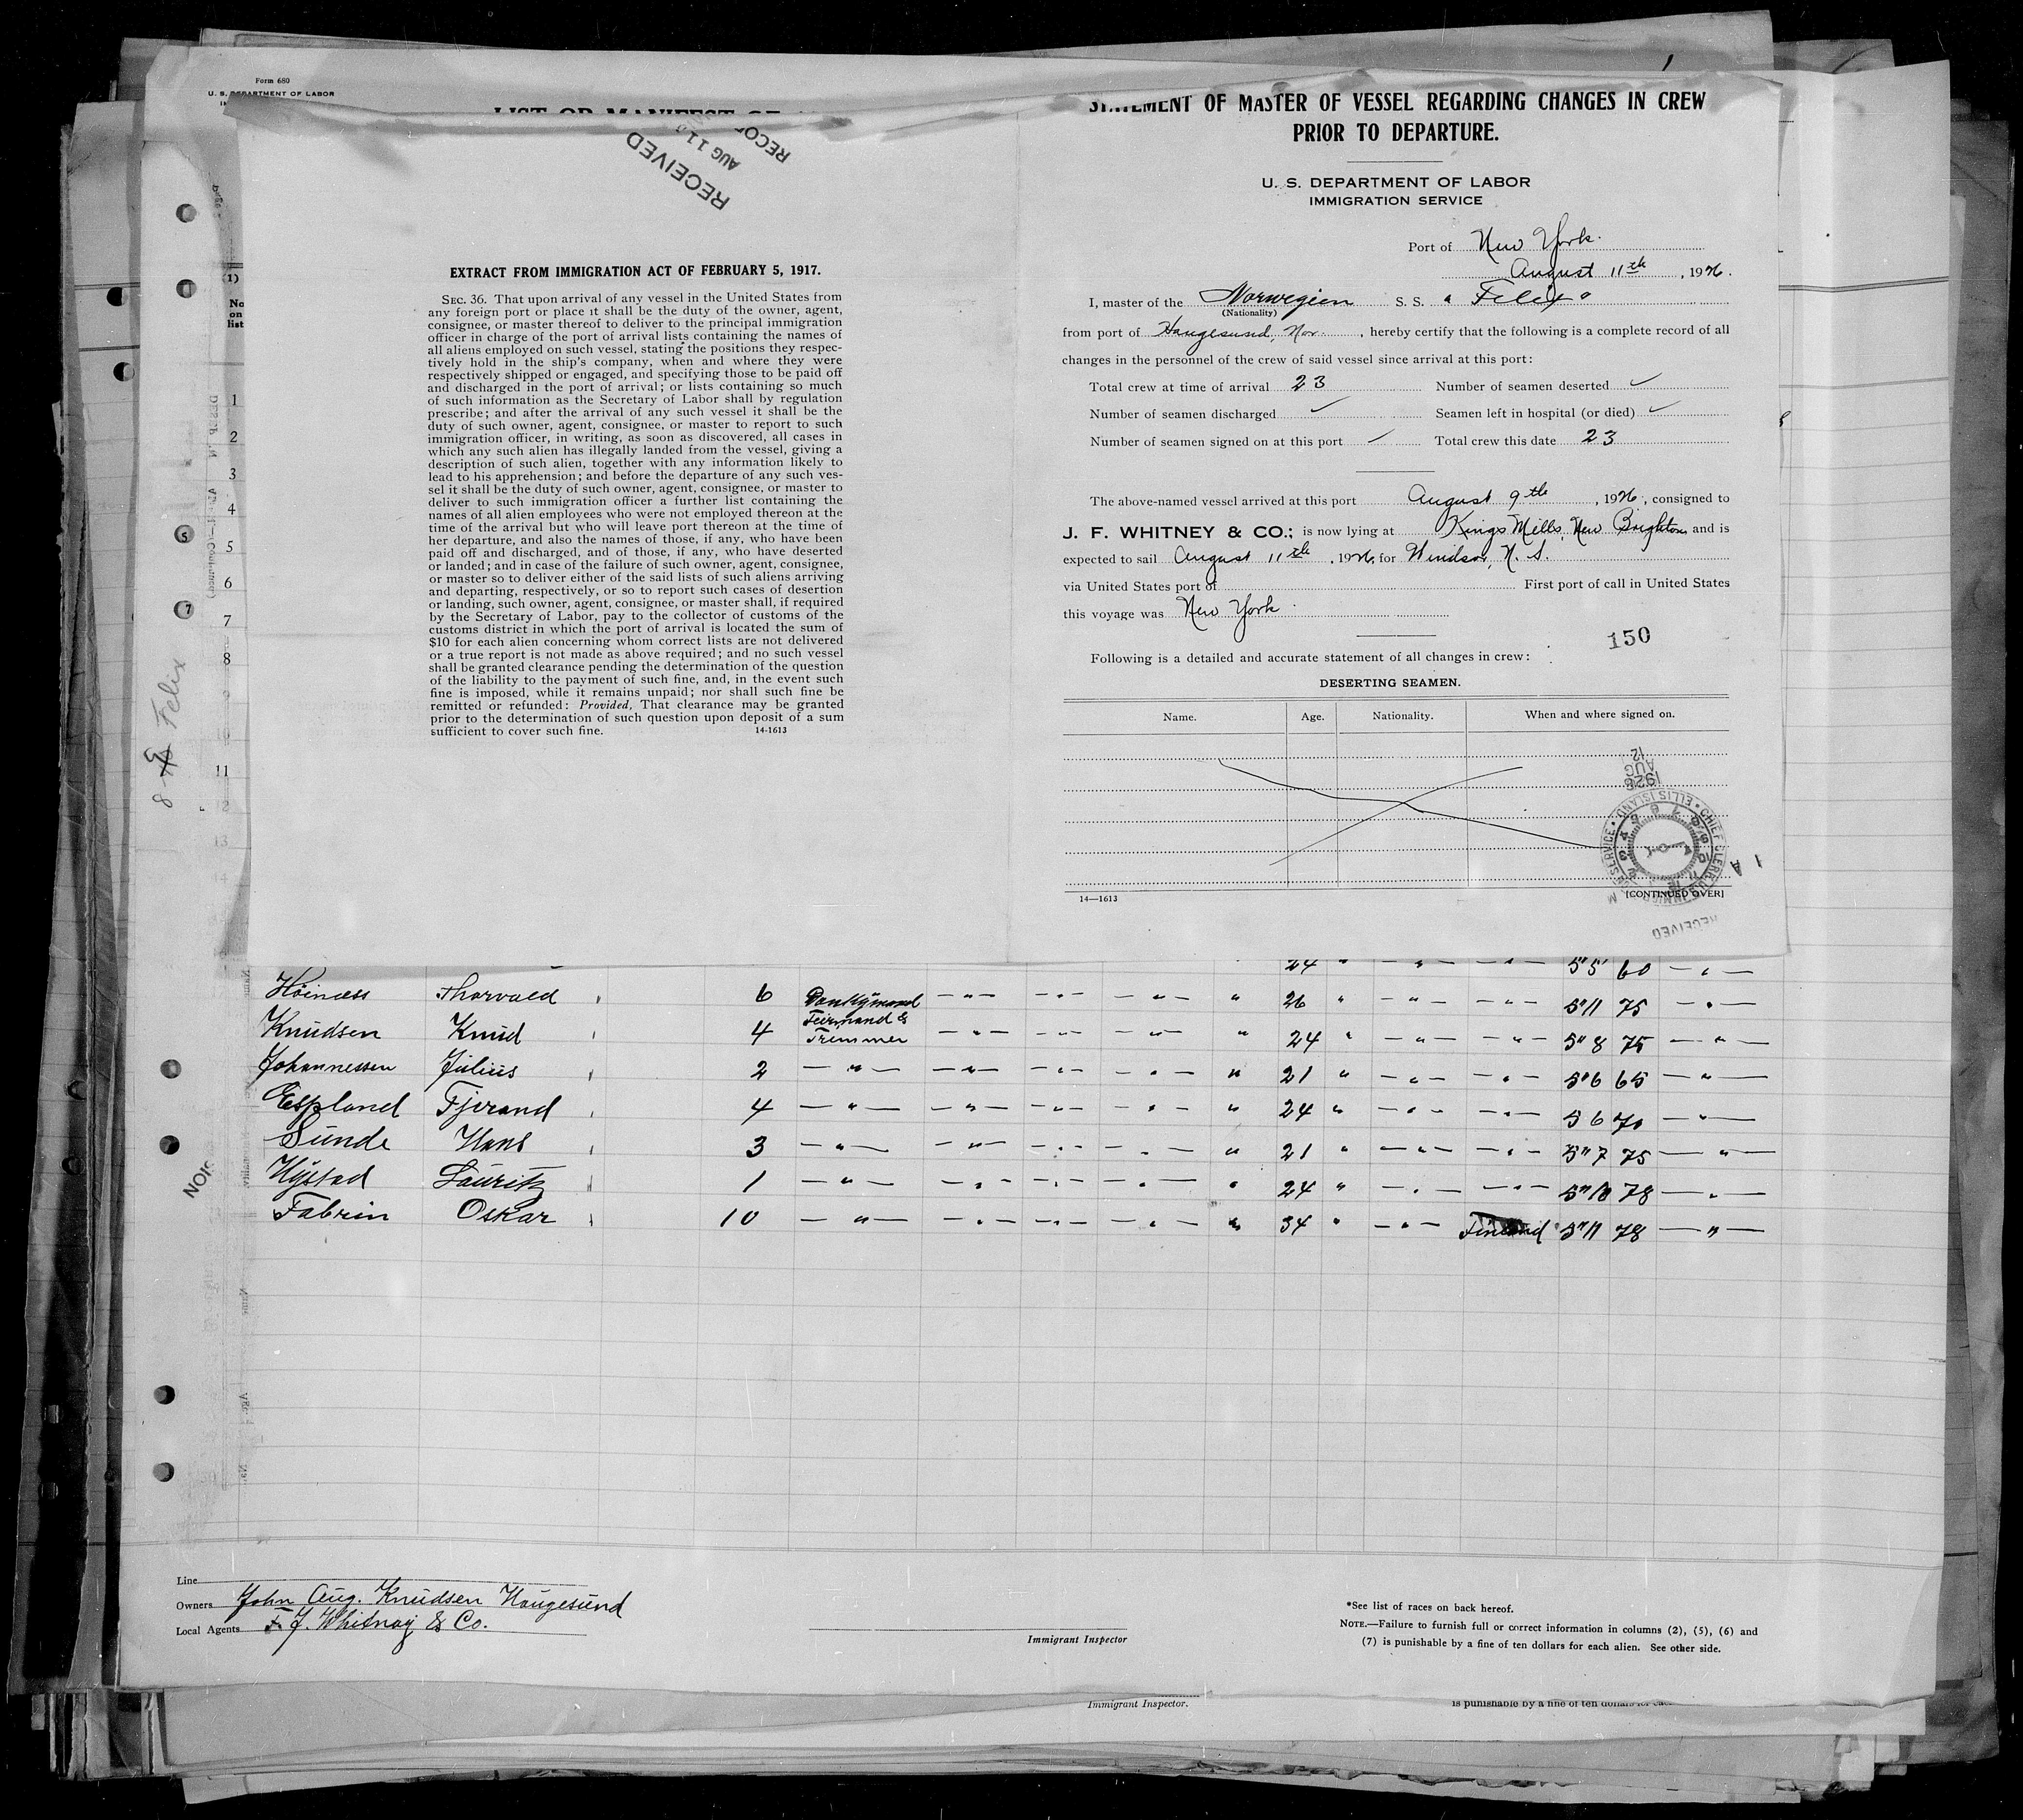 Form 680
U. S. DEPARTMENT OF LABOR
LIST OR MANIFEST OF
RECEIVED
AUG 11
EXTRACT FROM IMMIGRATION ACT OF FEBRUARY 5, 1917.
SEC. 36. That upon arrival of any vessel in the United States from
any foreign port or place it shall be the duty of the owner, agent,
consignee, or master thereof to deliver to the principal immigration
officer in charge of the port of arrival lists containing the names of
all aliens employed on such vessel, stating the positions they respec-
tively hold in the ship's company, when and where they were
respectively shipped or engaged, and specifying those to be paid off
and discharged in the port of arrival; or lists containing so much
of such information as the Secretary of Labor shall by regulation
prescribe; and after the arrival of any such vessel it shall be the
duty of such owner, agent, consignee, or master to report to such
immigration officer, in writing, as soon as discovered, all cases in
which any such alien has illegally landed from the vessel, giving a
description of such alien, together with any information likely to
lead to his apprehension; and before the departure of any such ves-
sel it shall be the duty of such owner, agent, consignee, or master to
deliver to such immigration officer a further list containing the
names of all alien employees who were not employed thereon at the
time of the arrival but who will leave port thereon at the time of
her departure, and also the names of those, if any, who have been
paid off and discharged, and of those, if any, who have deserted
or landed; and in case of the failure of such owner, agent, consignee,
or master so to deliver either of the said lists of such aliens arriving
and departing, respectively, or so to report such cases of desertion
or landing, such owner, agent, consignee, or master shall, if required
by the Secretary of Labor, pay to the collector of customs of the
customs district in which the port of arrival is located the sum of
$10 for each alien concerning whom correct lists are not delivered
or a true report is not made as above required; and no such vessel
shall be granted clearance pending the determination of the question
of the liability to the payment of such fine, and, in the event such
fine is imposed, while it remains unpaid; nor shall such fine be
remitted or refunded: Provided, That clearance may be granted
prior to the determination of such question upon deposit of a sum
sufficient to cover such fine. 14-1613
STATEMENT OF MASTER OF VESSEL REGARDING CHANGES IN CREW
PRIOR TO DEPARTURE.
U. S. DEPARTMENT OF LABOR
IMMIGRATION SERVICE
Port of New York.
August 11th, 1926.
I, master of the Norwegian S. S. "Felix"
(Nationality)
from port of Haugesund, Nor., hereby certify that the following is a complete record of all
changes in the personnel of the crew of said vessel since arrival at this port:
Total crew at time of arrival 23 Number of seamen deserted ✓
Number of seamen discharged ✓ Seamen left in hospital (or died) ✓
Number of seamen signed on at this port ✓ Total crew this date 23
The above-named vessel arrived at this port August 9th, 1926, consigned to
J. F. WHITNEY & CO.; is now lying at Kings Mills, New Brighton and is
expected to sail August 11th, 1926, for Windsor, N. S.
via United States port of First port of call in United States
this voyage was New York.
150
Following is a detailed and accurate statement of all changes in crew:
DESERTING SEAMEN.
Name. Age. Nationality. When and where signed on.
1926 AUG 12
CHIEF CLERK U.S. IMMIGRATION SERVICE • ELLIS ISLAND
RECEIVED
14—1613 [CONTINUED OVER]
(1)
No
on
list
1
2
3
4
5
6
7
8
11
8 9 Felix
24 " — " — — " — 5"5 60 — " —
Höiness Thorvald 6 Donkeymand — " — — " — — " — " 26 " — " — — " — 5"11 75 — " —
Knudsen Knud 4 Feirmand & Tremmer — " — — " — — " — " 24 " — " — — " — 5"8 75 — " —
Johannessen Julius 2 — " — — " — — " — — " — " 21 " — " — — " — 5"6 65 — " —
Espland Tjerand 4 — " — — " — — " — — " — " 24 " — " — — " — 5 6 70 — " —
Sunde Hans 3 — " — — " — — " — — " — " 21 " — " — — " — 5"7 75 — " —
Hystad Lauritz 1 — " — — " — — " — — " — " 24 " — " — — " — 5"10 78 — " —
Fabrin Oskar 10 — " — — " — — " — — " — " 34 " — " — Finland 5"11 78 — " —
Line
Owners John Aug. Knudsen Haugesund
Local Agents F. J. Whitnay & Co.
Immigrant Inspector
*See list of races on back hereof.
NOTE.—Failure to furnish full or correct information in columns (2), (5), (6) and
(7) is punishable by a fine of ten dollars for each alien. See other side.
Immigrant Inspector.
is punishable by a fine of ten dollars for each